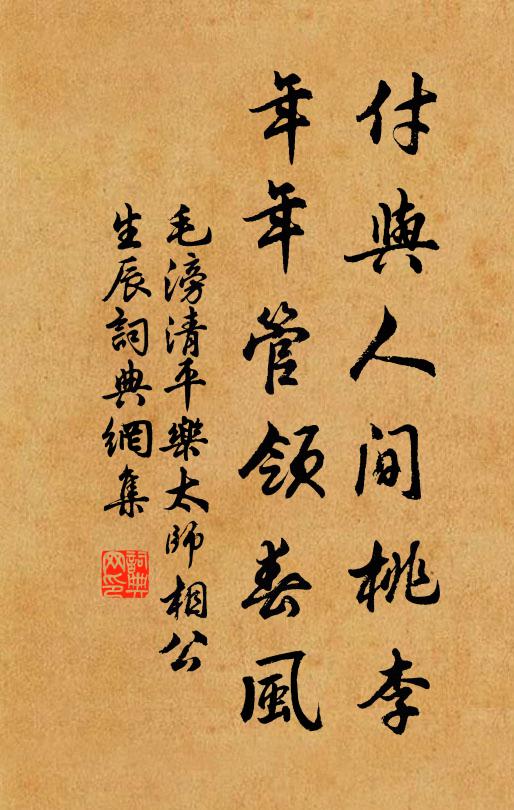 付與人間桃李
年年管領春風
毛滂清平樂太師相公
生辰詞典網集
詞典网印